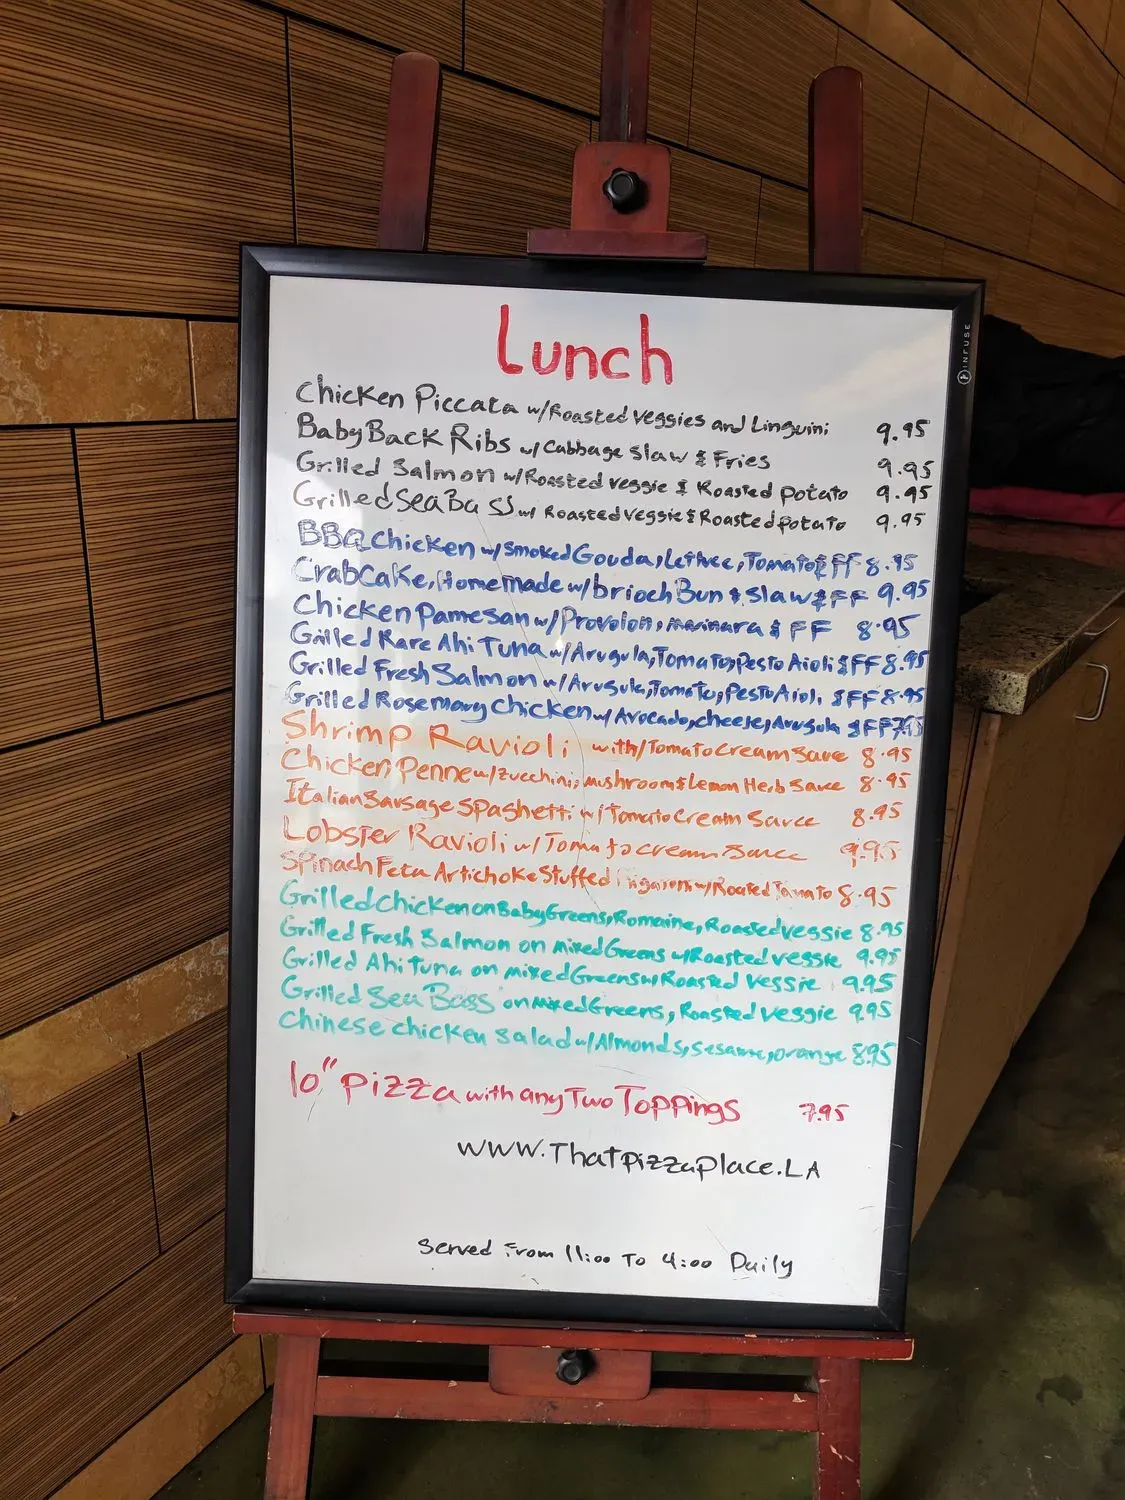 INFUSE
Lunch
Chicken Piccata w/Roasted veggies and Linguini 9.95
Baby Back Ribs w/ Cabbage Slaw & Fries 9.95
Grilled Salmon w/Roasted veggie & Roasted potato 9.95
Grilled Sea Bass w/ Roasted veggie & Roasted potato 9.95
BBQ chicken w/smoked Gouda, Lettuce, Tomato & FF 8.95
CrabCake, Homemade w/brioch Bun & Slaw & FF 9.95
Chicken Pamesan w/Provolon, marinara & FF 8.95
Grilled Rare Ahi Tuna w/Arugula, Tomato, Pesto Aioli & FF 8.95
Grilled Fresh Salmon w/Arugula, Tomato, Pesto Aioli & FF 8.95
Grilled Rosemary chicken w/ Avocado, cheese, Arugula & FF 7.95
Shrimp Ravioli with/Tomato Cream Sauce 8.95
Chicken Penne w/zucchini, mushroom & Lemon Herb Sauce 8.95
Italian Sausage Spaghetti w/Tomato cream Sauce 8.95
Lobster Ravioli w/ Tomato cream Sauce 9.95
Spinach Feta Artichoke Stuffed w/Roasted Tomato 8.95
Grilled chicken on Baby Greens, Romaine, Roasted veggie 8.95
Grilled Fresh Salmon on mixed Greens w/Roasted veggie 9.95
Grilled Ahi Tuna on mixed Greens w/Roasted Veggie 9.95
Grilled Sea Bass on mixed Greens, Roasted veggie 9.95
Chinese chicken salad w/Almonds, sesame, orange 8.95
10" Pizza with any Two Toppings 7.95
www.ThatpizzaPlace.LA
Served From 11:00 To 4:00 Daily